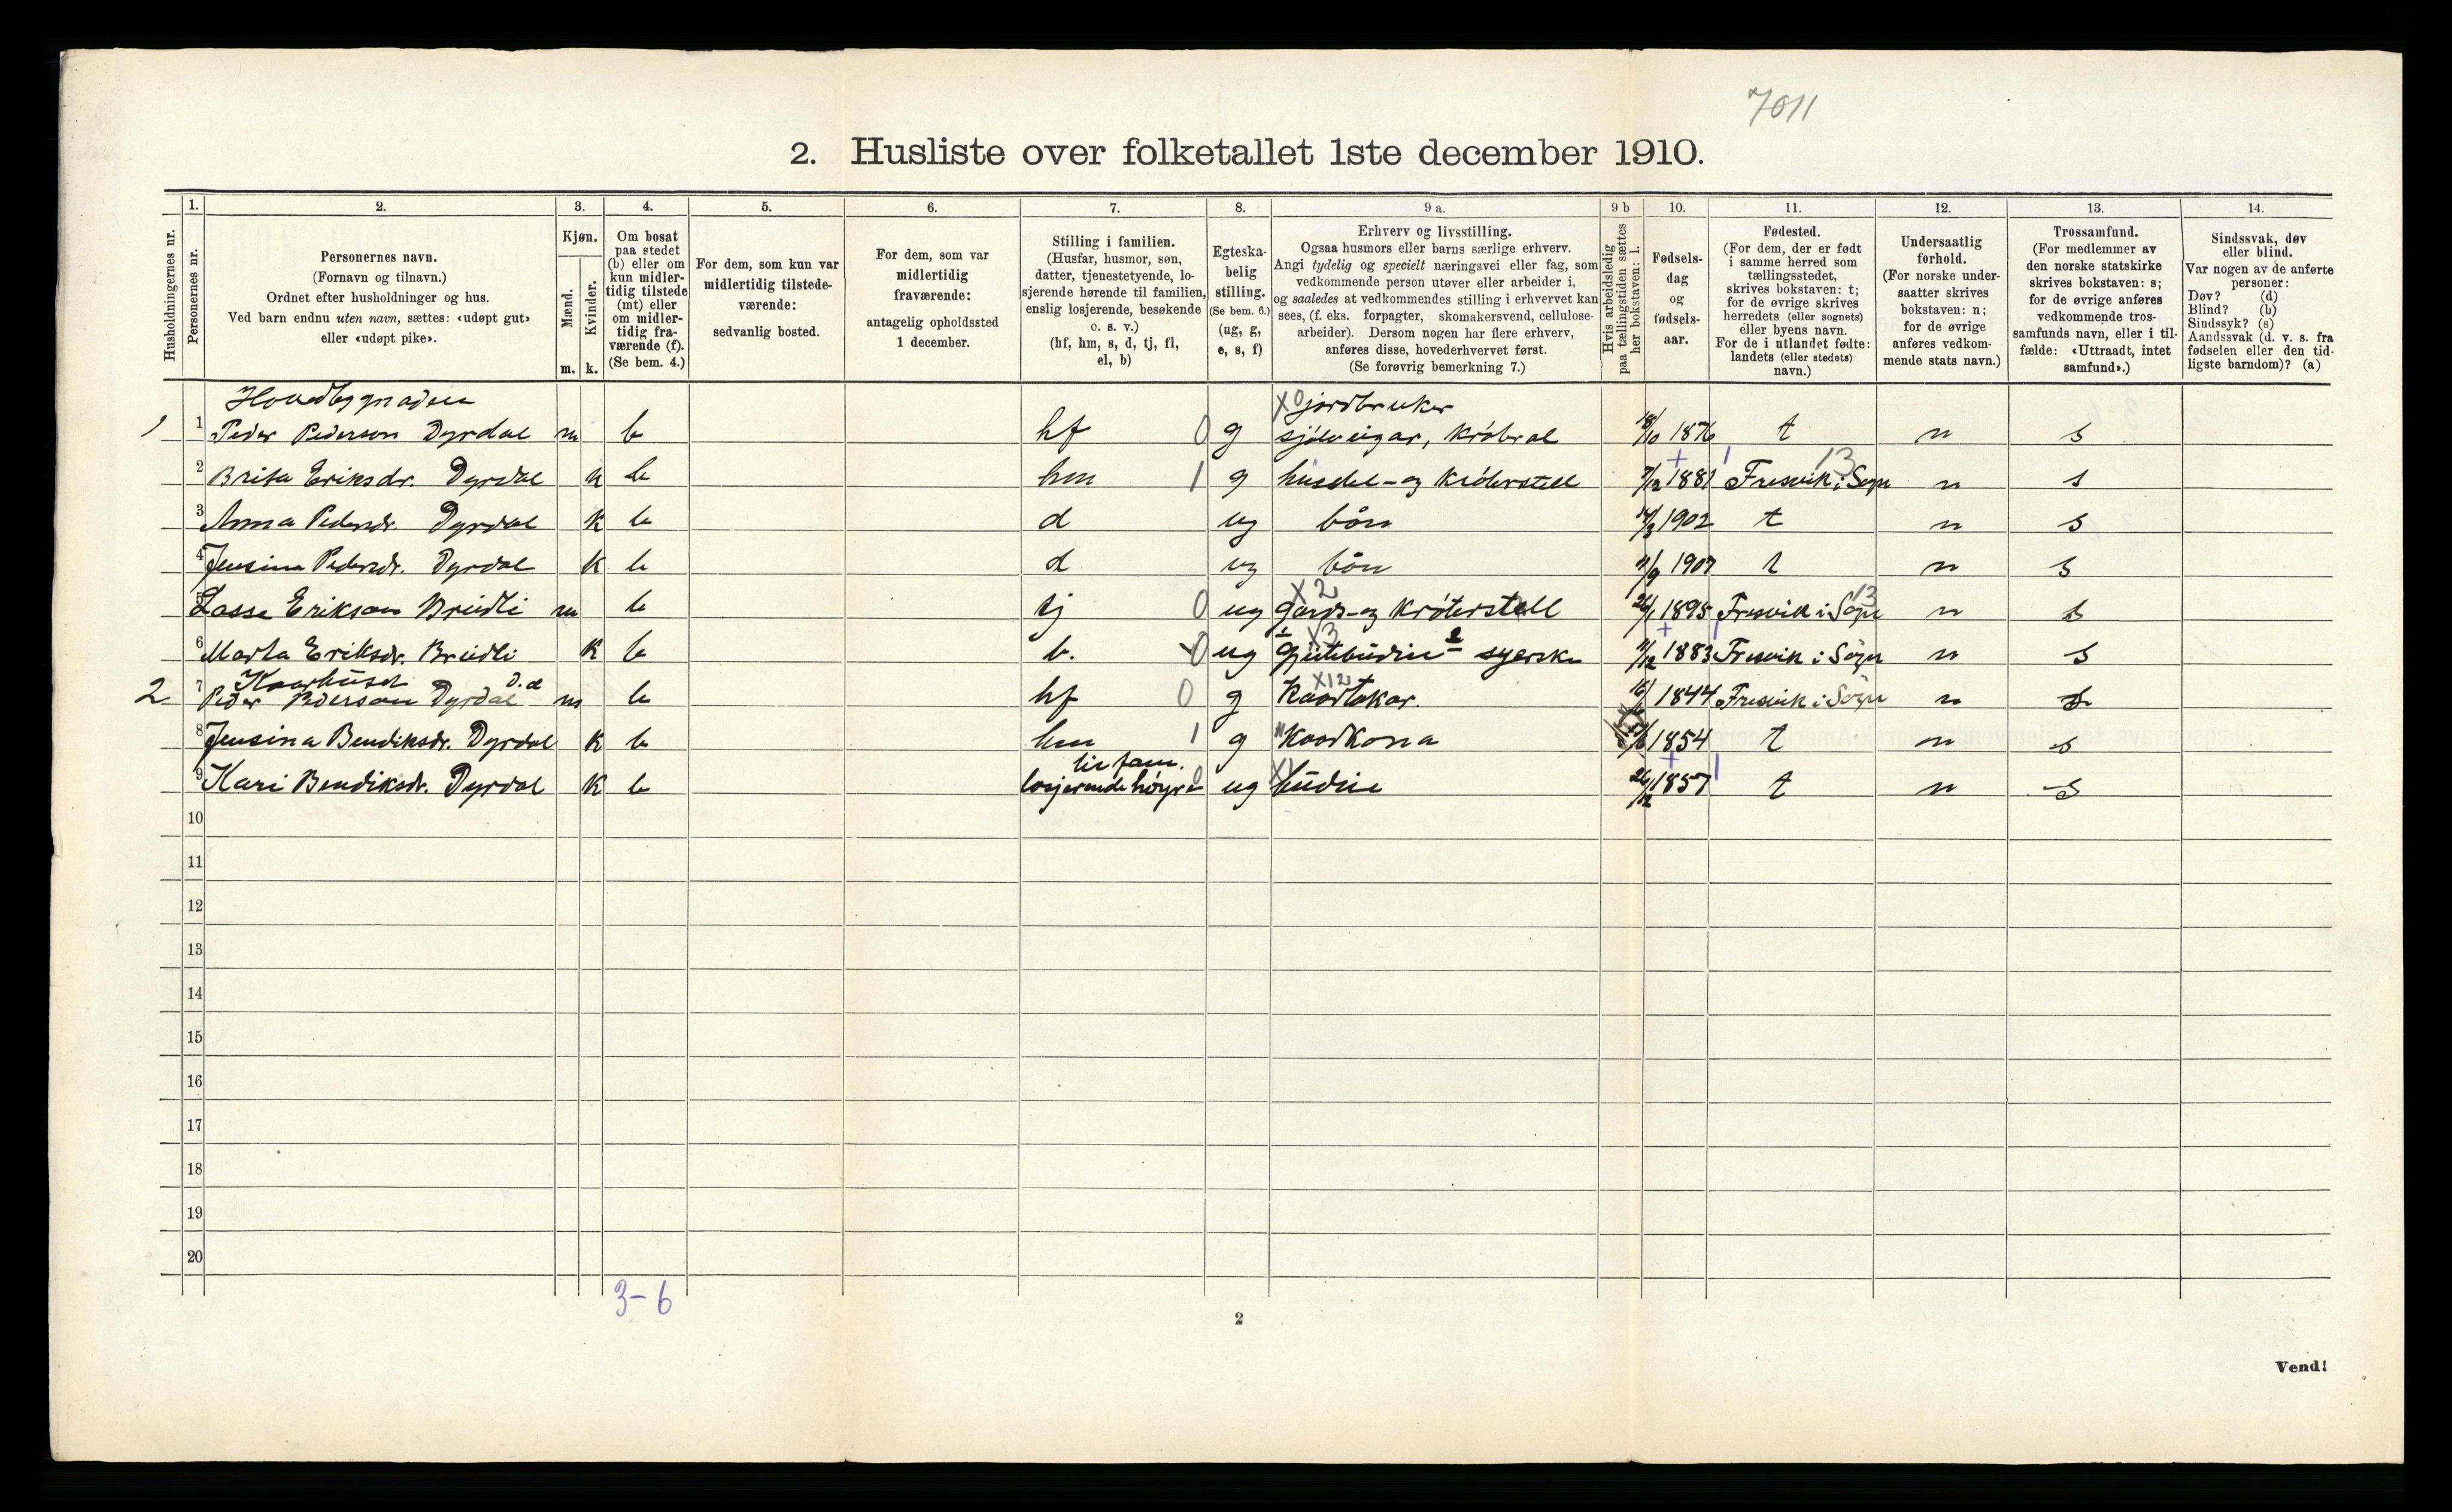 7011
2. Husliste over folketallet 1ste december 1910.
Husholdningernes nr.
1.
Personernes nr.
2.
Personernes navn.
(Fornavn og tilnavn.)
Ordnet efter husholdninger og hus.
Ved barn endnu uten navn, sættes: «udøpt gut»
eller «udøpt pike».
3.
Kjøn.
Mænd.
Kvinder.
m. k.
4.
Om bosat
paa stedet
(b) eller om
kun midler-
tidig tilstede
(mt) eller
om midler-
tidig fra-
værende (f).
(Se bem. 4.)
5.
For dem, som kun var
midlertidig tilstede-
værende:
sedvanlig bosted.
6.
For dem, som var
midlertidig
fraværende:
antagelig opholdssted
1 december.
7.
Stilling i familien.
(Husfar, husmor, søn,
datter, tjenestetyende, lo-
sjerende hørende til familien,
enslig losjerende, besøkende
o. s. v.)
(hf, hm, s, d, tj, fl,
el, b)
8.
Egteska-
belig
stilling.
(Se bem. 6.)
(ug, g,
e, s, f)
9 a.
Erhverv og livsstilling.
Ogsaa husmors eller barns særlige erhverv.
Angi tydelig og specielt næringsvei eller fag, som
vedkommende person utøver eller arbeider i,
og saaledes at vedkommendes stilling i erhvervet kan
sees, (f. eks. forpagter, skomakersvend, cellulose-
arbeider). Dersom nogen har flere erhverv,
anføres disse, hovederhvervet først.
(Se forøvrig bemerkning 7.)
9 b
Hvis arbeidsledig
paa tællingstiden sættes
her bokstaven: l.
10.
Fødsels-
dag
og
fødsels-
aar.
11.
Fødested.
(For dem, der er født
i samme herred som
tællingsstedet,
skrives bokstaven: t;
for de øvrige skrives
herredets (eller sognets)
eller byens navn.
For de i utlandet fødte:
landets (eller stedets)
navn.)
12.
Undersaatlig
forhold.
(For norske under-
saatter skrives
bokstaven: n;
for de øvrige
anføres vedkom-
mende stats navn.)
13.
Trossamfund.
(For medlemmer av
den norske statskirke
skrives bokstaven: s;
for de øvrige anføres
vedkommende tros-
samfunds navn, eller i til-
fælde: «Uttraadt, intet
samfund».)
14.
Sindssvak, døv
eller blind.
Var nogen av de anførte
personer:
Døv? (d)
Blind? (b)
Sindssyk? (s)
Aandssvak (d. v. s. fra
fødselen eller den tid-
ligste barndom)? (a)
Hovedbygnaden X0 jordbruker
1 1 Peder Pederson Dyrdal m b hf 0 g sjølveigar, krøtral 18/10 1876 t n s
2 Brita Eriksdr. Dyrdal k b hm 1 g husstel- og krøterstell 7/12 1881 Fresvik i Sogn 13 n s
3 Anna Pedersdr. Dyrdal k b d ug bån 14/3 1902 t n s
4 Jensina Pedersdr. Dyrdal k b d ug bån 11/9 1907 t n s
5 Lasse Erikson Breidli m b tj 0 ug X2 gards- og krøterstell 26/1 1895 Fresvik i Sogn 13 n s
6 Marta Eriksdr. Breidli k b b. 0 ug X3 syerske 11/12 1883 Fresvik i Sogn n s
Kaarhuset
2 7 Peder Pederson Dyrdal d.e m b hf 0 g X12 Kaartakar. 1844 Fresvik i Sogn n s
8 Jensina Bendiksdr. Dyrdal k b hm 1 g Kaarkona 1854 t n s
til fam.
9 Kari Bendiksdr. Dyrdal k b losjerende høyrer 0 ug budeie 26/12 1857 t n s
10
11
12
13
14
15
16
17
18
19
20
3-6
2
Vend!